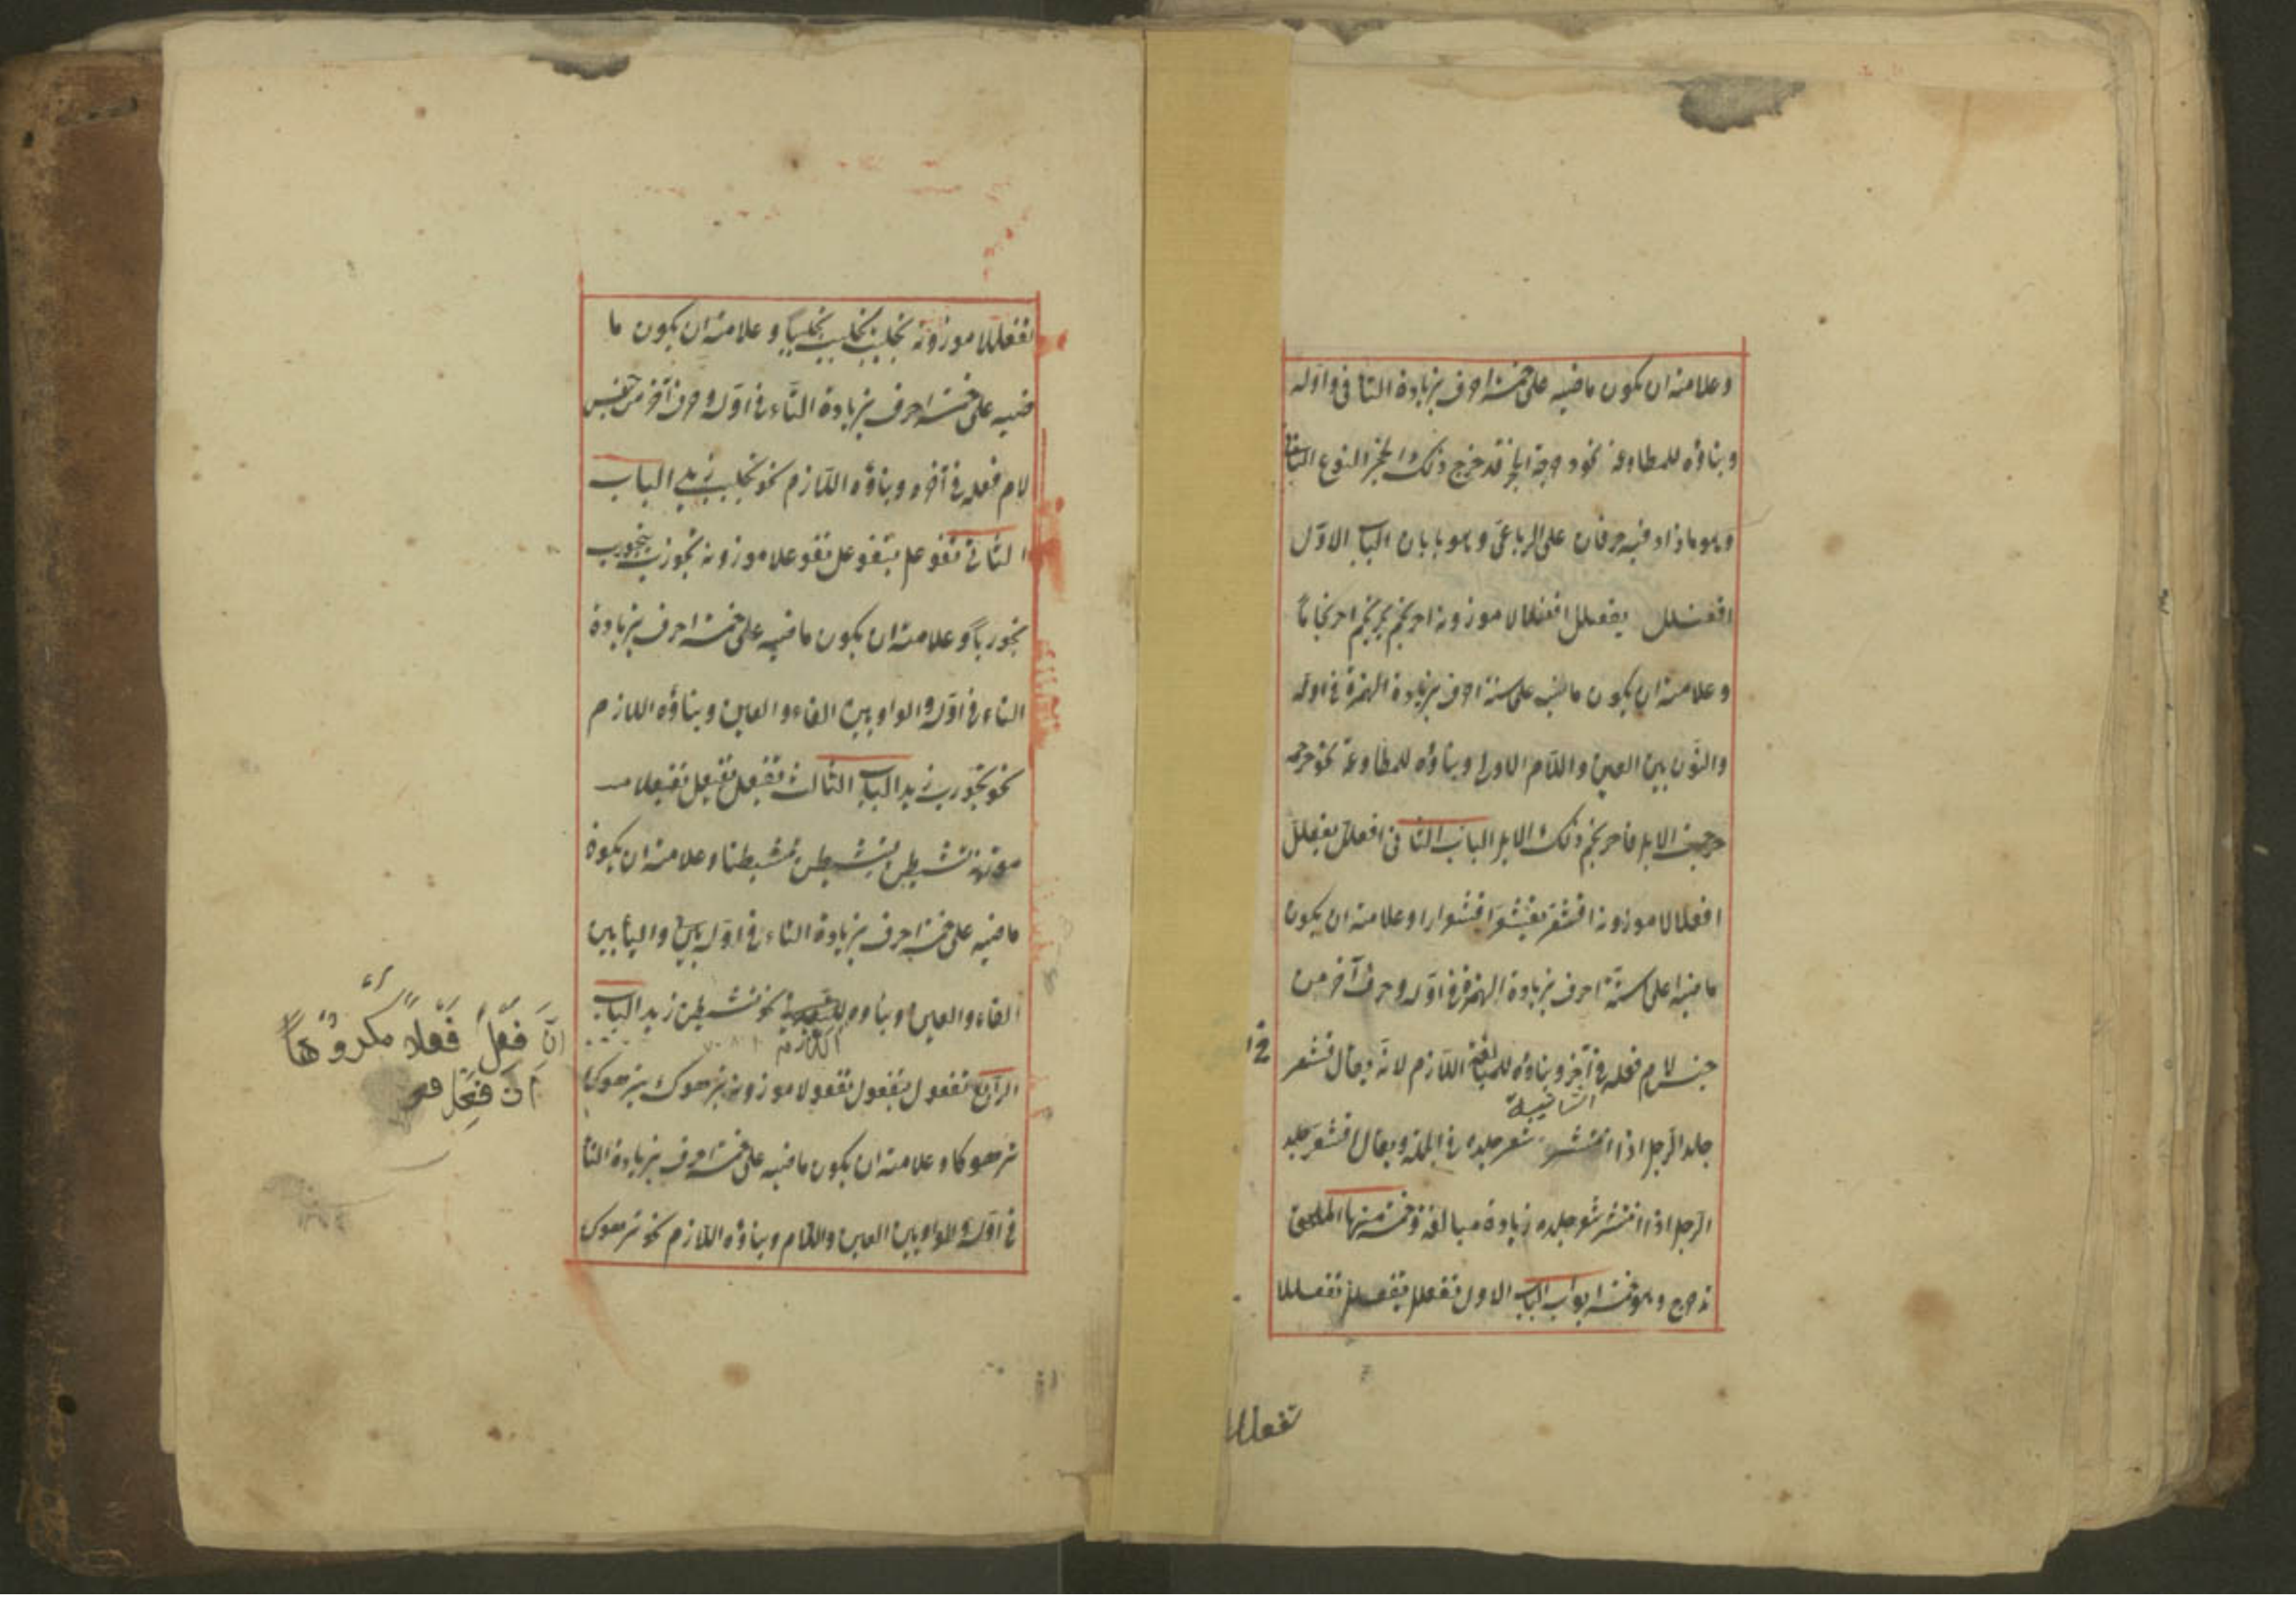 وعلامته ان يكون ماضيه على خمسة احرف بزيادة التا فى واوله
وبناؤه للمطاوعة نحو دحرجة الحجر فتدحرج ذلك الحجر النوع الثانى
وهو ما زاد فيه حرفان على الرباعى وهو بابان الباب الاوّل
افعنلل يفعنلل افعنلالا موزونه احرنجم يحرنجم احرنجاماً
وعلامته ان يكون ماضيه على ستة احرف بزيادة الهمزة فى اوله
والنّون بين العين واللام الاولى وبناؤه للمطاوعة نحو حرجمة
حرجمت الابل فاحرنجم ذلك الابل الباب الثانى افعللّ يفعللّ
افعللالا موزونه اقشعرّ يقشعرّ اقشعرارا وعلامته ان يكون
ماضيه على ستّة احرف بزيادة الهمزة فى اوّله وحرف آخر من
جنس لام فعله فى آخره وبناؤه للمبالغة اللّازم لانّه يقال قشعر
الثانية
جلد الرّجل اذا انتشر شعر جلده فى الجملة ويقال اقشعرّ جلد
الرّجل اذا انتشر شعر جلده زيادة مبالغة وخمسة منها الملحق
تدحرج وهو خمسة ابواب الباب الاول تفعلل يتفعلل تفعللا
تفعللا
تفعللا موزونه تجلبب يتجلبب تجلبباً وعلامته ان يكون ما
ضيه على خمسة احرف بزيادة التّاء فى اوّله وحرف آخر من جنس
لام فعله فى آخره وبناؤه اللّازم نحو تجلبب زيد الباب
الثانى تفوعل يتفوعل تفوعلا موزونه تجورب يتجورب
تجورباً وعلامته ان يكون ماضيه على خمسة احرف بزيادة
التاء فى اوّله والواو بين الفاء والعين وبناؤه اللازم
نحو تجورب زيد الباب الثالث تفيعل يتفيعل تفيعلا مـ
موزونه تشيطن يتشيطن تشيطنا وعلامته ان يكون
ماضيه على خمسة احرف بزيادة التاء فى اوّله والياء بين
الفاء والعين وبناوه نحو تشيطن زيد الباب
اللازم
الرّابع تفعول يتفعول تفعولا موزونه ترهوك يترهوك
ترهوكا وعلامته ان يكون ماضيه على خمسة احرف بزيادة التا
فى اوّله والواو بين العين واللام وبناؤه اللّازم نحو ترهوك
انّ فعّل فعّلاً مكروهاً
ان فعل